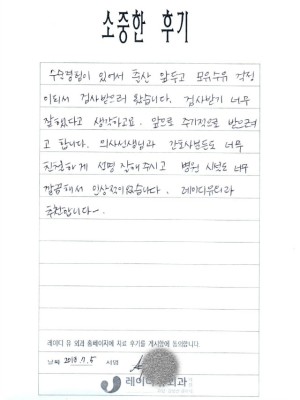 소중한 후기
유수결절이 있어서 출산 앞두고 모유수유 걱정
이되서 검사받으러 왔습니다. 검사받기 너무
잘했다고 생각하고요. 앞으로 주기적으로 받으려
고 합니다. 의사선생님과 간호사분들도 너무
친절하게 설명 잘해주시고 병원 시설도 너무
깔끔해서 인상적이었습니다. 레이디유외과
추천합니다~.
레이디 유 외과 홈페이지에 치료 후기를 게시함에 동의합니다.
날짜 2018. 11. 5 서명
레이디유외과